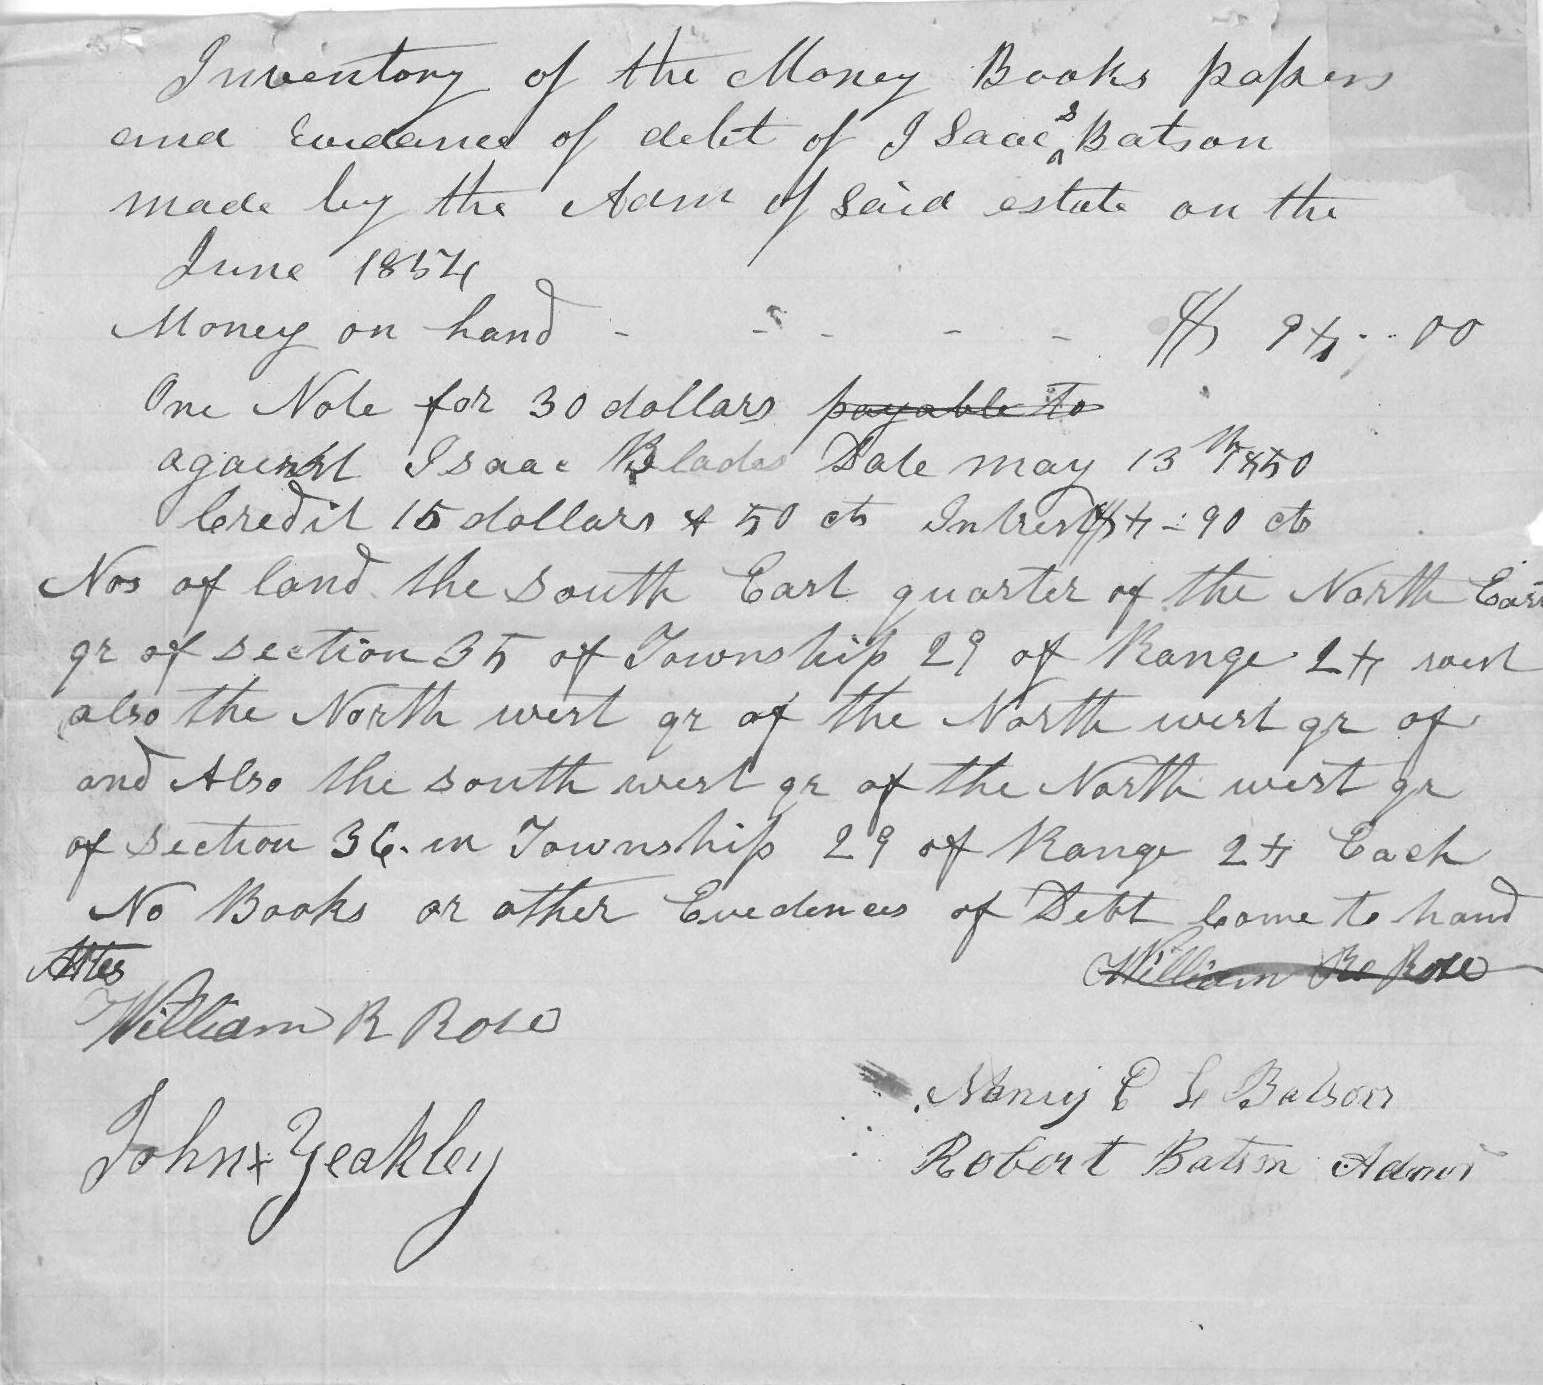 Inventory of the Money Books papers
and Evidance of debt of I Saac S Batson
made by the Adm of Said estate on the
June 1854
Money on hand - - - - - $ 94.. 00
One Note for 30 dollars payable to
against Isaac Blades Date may 13th 1850
Credit 15 dollars & 50 cts Intrest $4 - 90 cts
Nos of land the South East quarter of the North East
qr of section 35 of Township 29 of Range 24 west
also the North west qr of the North west qr of
and Also the south west qr of the North west qr
of section 36. in Township 29 of Range 24 Each
No Books or other Evedences of Debt Come to hand
Attes William R Rose
William R Rose
Nancy E L Batson
John Yeakley
Robert Batson Admr